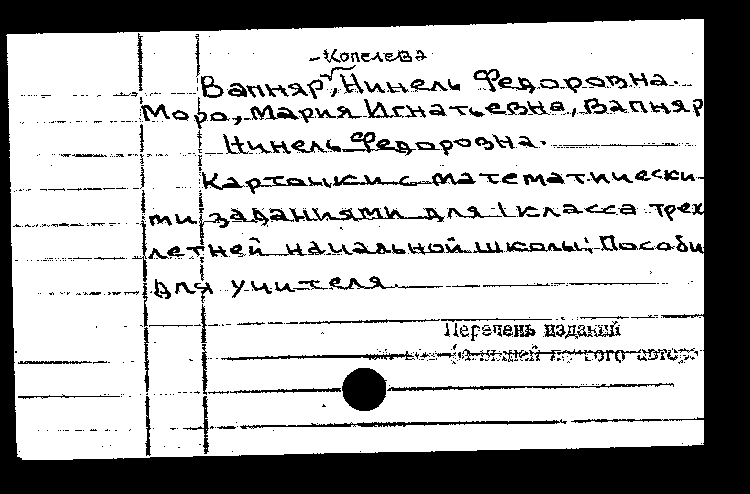 -Копелева
Вапняр, Нинель Федоровна.
Моро, Мария Игнатьевна, Вапняр
Нинель Федоровна.
Карточки с математически-
ми заданиями для 1 класса трех
летней начальной школы: Пособи
для учителя.
Перечень изданий
под фамилией другого автора